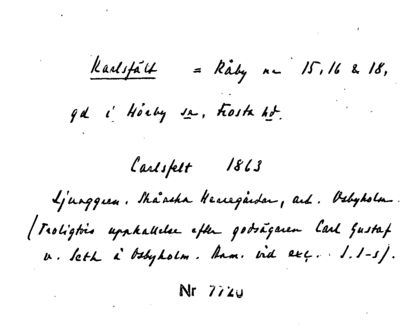 Karlsfält = Råby nr 15, 16 & 18,
gd i Hörby sn, Frosta hd.
Carlsfelt 1863
Ljunggren. Skånska Herregårdar, art. Osbyholm.
(Troligtvis uppkallelse efter godsägaren Carl Gustaf
v. Seth å Osbyholm. Anm. vid exc. J. I-s).
Nr 7720